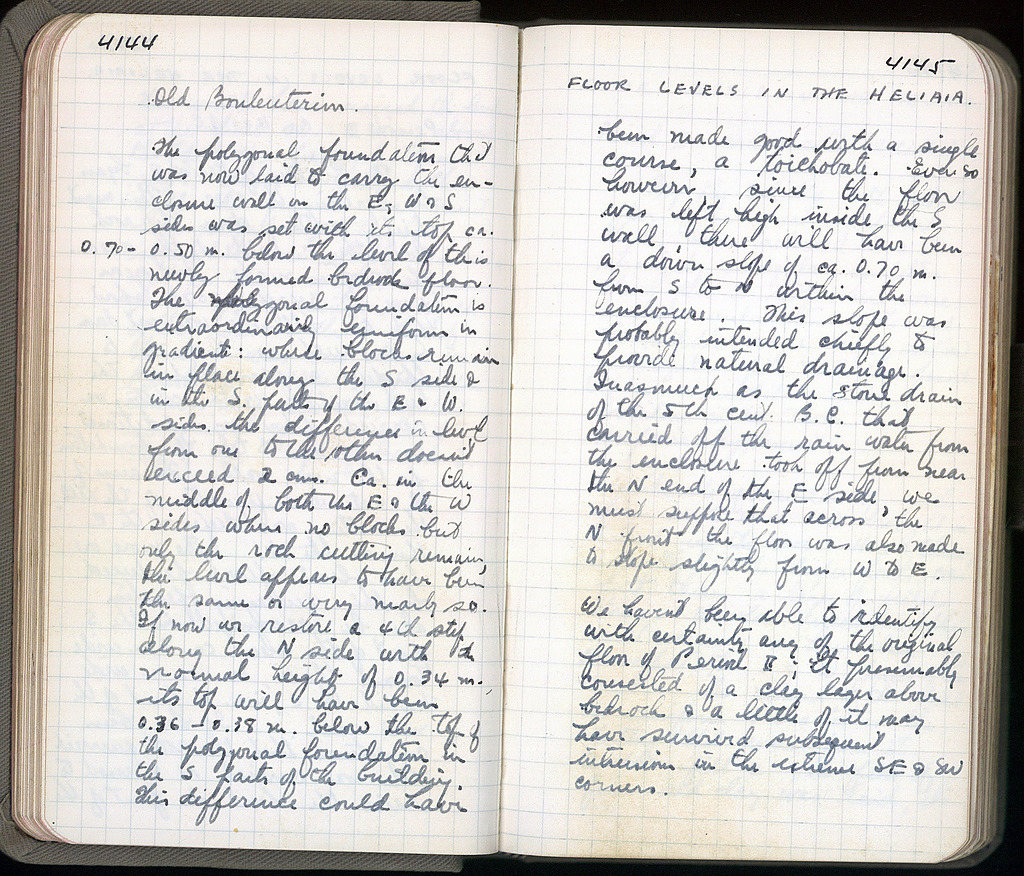 4144
Old Bouleuterion.
The polygonal foundation that
was now laid to carry the en-
closure wall on the E, W & S
sides was set with its top ca.
0.70-0.50 m. below the level of this
newly formed bedrock floor.
The polygonal foundation is
extraordinarily uniform in
gradient: where blocks remain
in place along the S side &
in the S. parts of the E & W.
sides the difference in level
from one to the other doesn't
exceed 2 cms. Ca. in the
middle of both the E & the W
sides where no blocks but
only the rock cutting remains,
the level appears to have been
the same or very nearly so.
If now we restore a 4th step
along the N side with the
normal height of 0.34 m.,
its top will have been
0.36-0.38 m. below the top of
the polygonal foundation in
the S parts of the building.
This difference could have
4145
FLOOR LEVELS IN THE HELIAIA.
been made good with a single
course, a toichobate. Even so
however, since the floor
was left high inside the S
wall, there will have been
a down slope of ca. 0.70 m.
from S to N within the
enclosure. This slope was
probably intended chiefly to
provide natural drainage.
Inasmuch as the stone drain
of the 5th cent. B.C. that
carried off the rain water from
the enclosure took off from near
the N end of the E side, we
must suppose that across the
N front the floor was also made
to slope slightly from W to E.
We haven't been able to identify
with certainty any of the original
floor of Period II; it presumably
consisted of a clay layer above
bedrock & a little of it may
have survived subsequent
intrusions in the extreme SE & SW
corners.